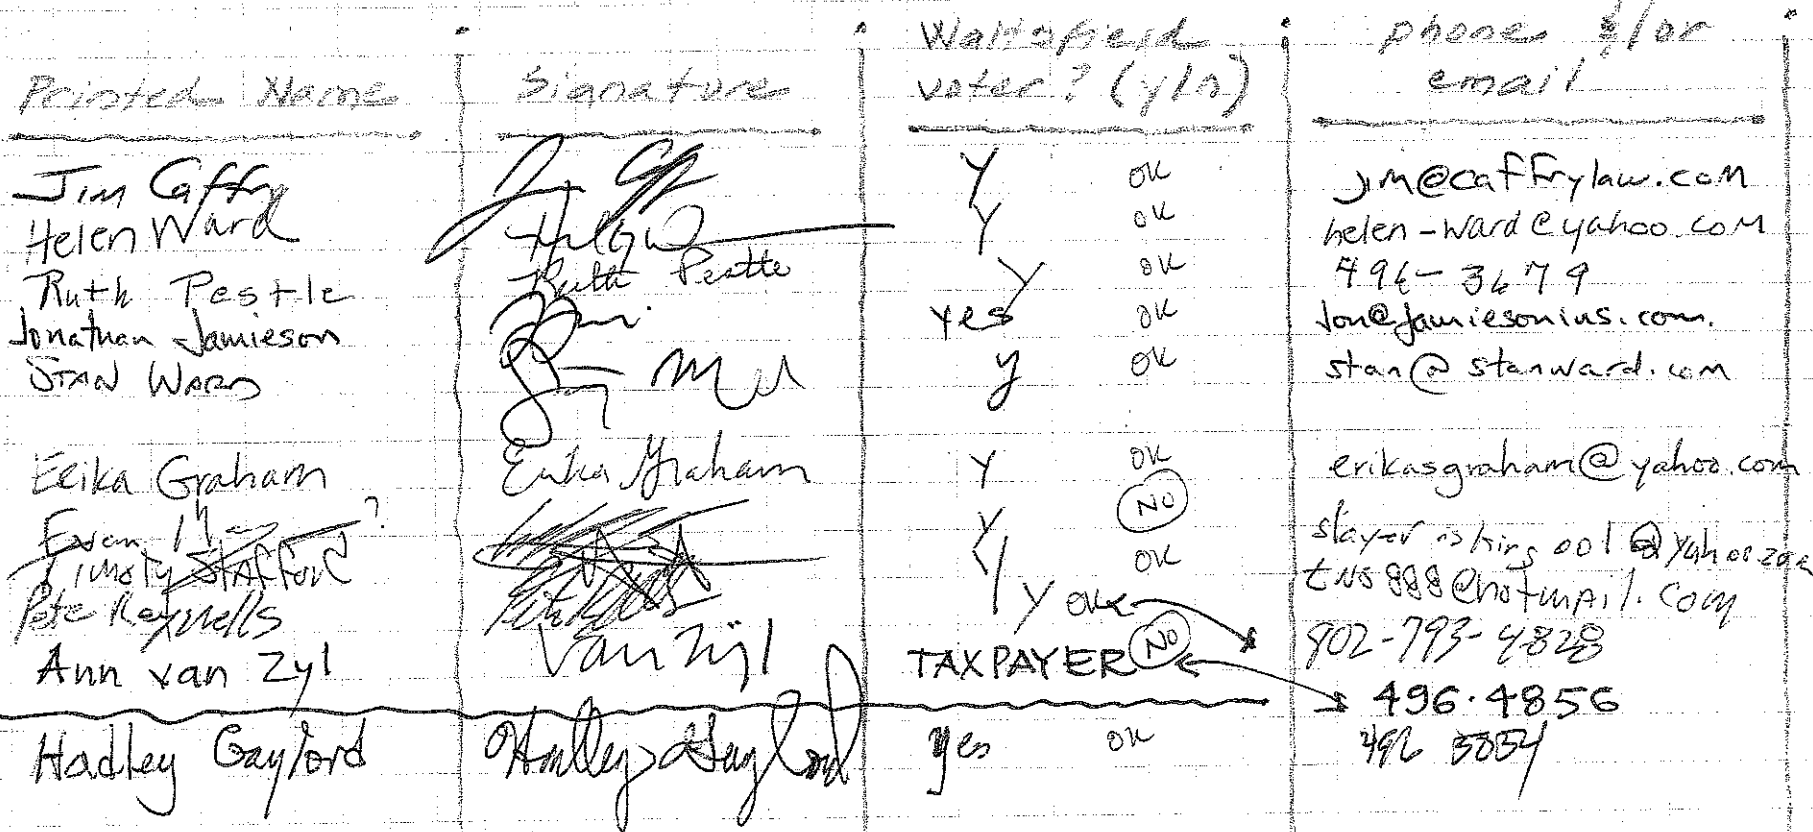 Printed Name Signature Waitsfield voter? (y/n) phone &/or email
Jim Caffry Y OK jim@caffrylaw.com
Helen Ward Y OK helen-ward@yahoo.com
Ruth Pestle Ruth Pestle Y OK 496-3679
Jonathan Jamieson yes OK jon@jamiesonins.com.
STAN WARD y OK stan@stanward.com
Erika Graham Erika Graham Y OK erikasgraham@yahoo.com
Evan ? Y NO
Timoty Stafford Y OK tns888@hotmail.com
Pete Reynells Y OK 802-793-4828
Ann van Zyl van Zyl TAXPAYER NO 496.4856
Hadley Gaylord Hadley Gaylord yes OK 496